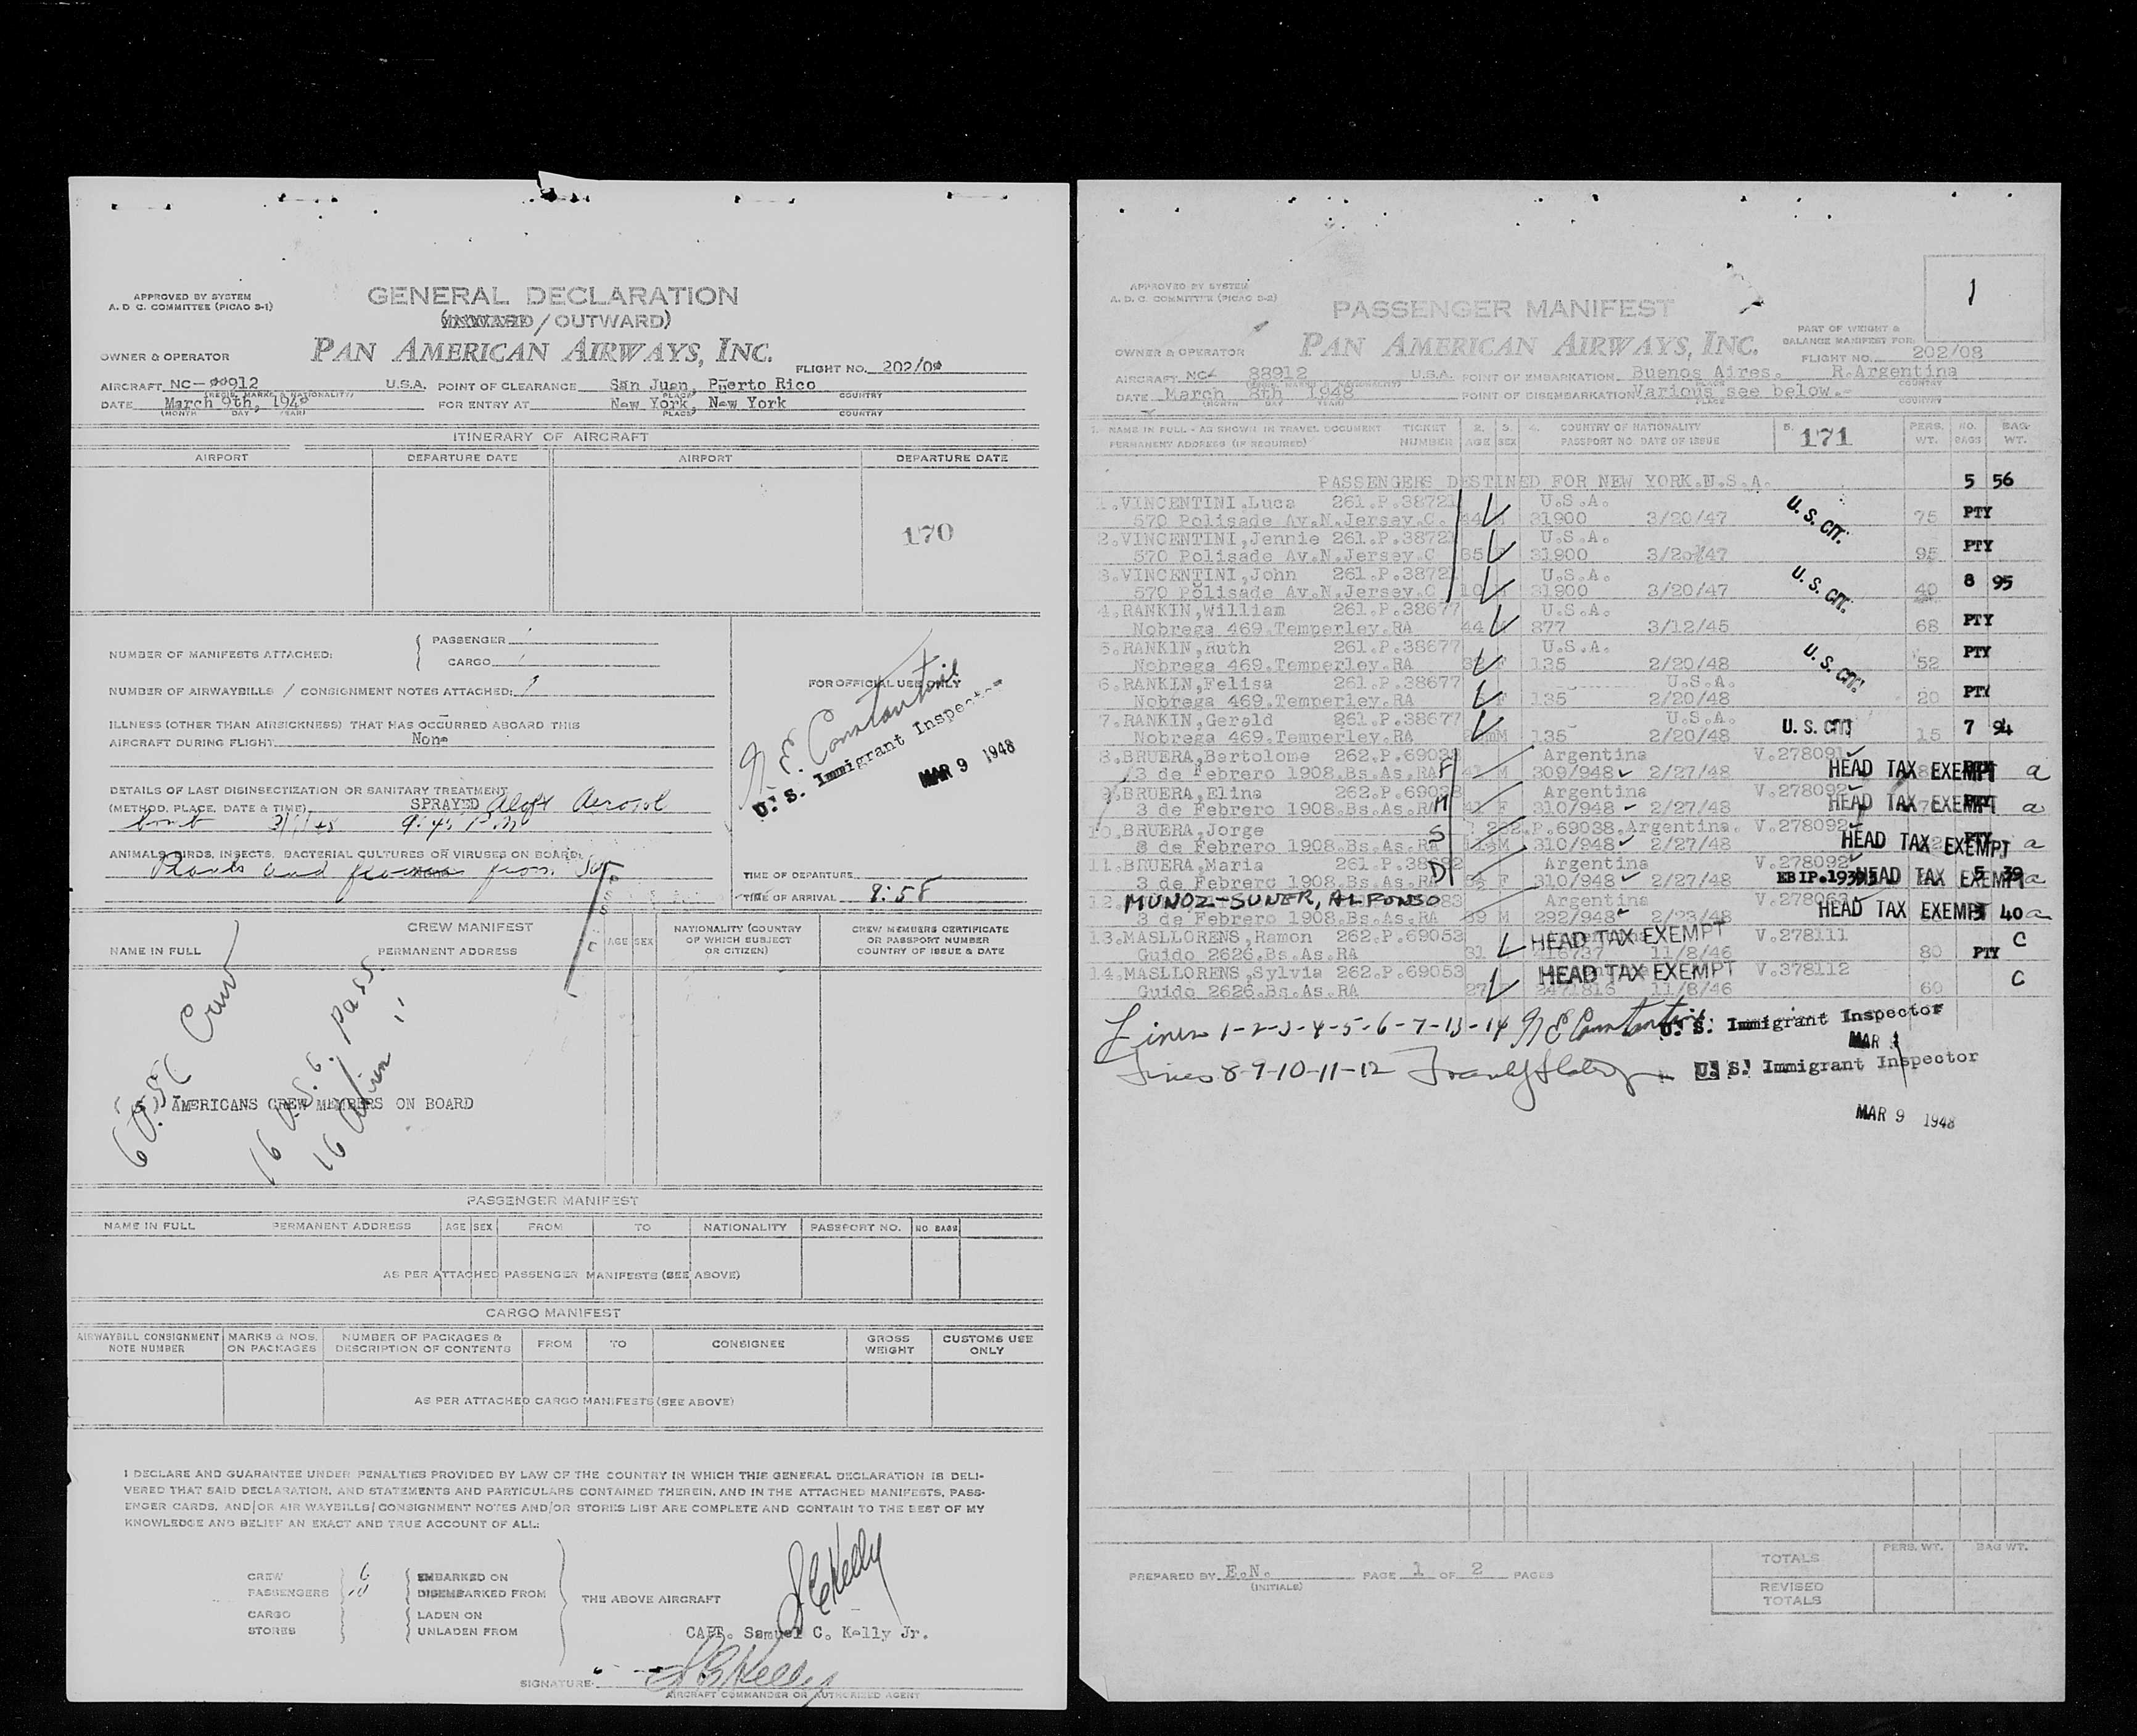 APPROVED BY SYSTEM
A. D. C. COMMITTEE (PICAO S-1)
GENERAL DECLARATION
(INWARD / OUTWARD)
PAN AMERICAN AIRWAYS, INC.
OWNER & OPERATOR
FLIGHT NO. 202/08
AIRCRAFT NC- 912 U.S.A. POINT OF CLEARANCE San Juan, Puerto Rico
(REGIS. MARKS & NATIONALITY) PLACE COUNTRY
DATE March 9th, 194 FOR ENTRY AT New York, New York
(MONTH DAY YEAR) PLACE COUNTRY
ITINERARY OF AIRCRAFT
AIRPORT DEPARTURE DATE AIRPORT DEPARTURE DATE
170
NUMBER OF MANIFESTS ATTACHED: PASSENGER
CARGO
NUMBER OF AIRWAYBILLS / CONSIGNMENT NOTES ATTACHED:
FOR OFFICIAL USE ONLY
N. E. Constantine
U. S. Immigrant Inspector
MAR 9 1948
ILLNESS (OTHER THAN AIRSICKNESS) THAT HAS OCCURRED ABOARD THIS
AIRCRAFT DURING FLIGHT None
DETAILS OF LAST DISINSECTIZATION OR SANITARY TREATMENT
(METHOD, PLACE, DATE & TIME) SPRAYED Aloft Aerosol
ANIMALS, BIRDS, INSECTS, BACTERIAL CULTURES OR VIRUSES ON BOARD:
Plants and flowers from
TIME OF DEPARTURE
TIME OF ARRIVAL 8:58
CREW MANIFEST
NAME IN FULL PERMANENT ADDRESS AGE SEX NATIONALITY (COUNTRY OF WHICH SUBJECT OR CITIZEN) CREW MEMBERS CERTIFICATE OR PASSPORT NUMBER COUNTRY OF ISSUE & DATE
6 USC Crew
16 U.S.C. pass.
16 Alien "
AMERICANS CREW MEMBERS ON BOARD
PASSENGER MANIFEST
NAME IN FULL PERMANENT ADDRESS AGE SEX FROM TO NATIONALITY PASSPORT NO. NO. BAGS
AS PER ATTACHED PASSENGER MANIFESTS (SEE ABOVE)
CARGO MANIFEST
AIRWAYBILL CONSIGNMENT NOTE NUMBER MARKS & NOS. ON PACKAGES NUMBER OF PACKAGES & DESCRIPTION OF CONTENTS FROM TO CONSIGNEE GROSS WEIGHT CUSTOMS USE ONLY
AS PER ATTACHED CARGO MANIFESTS (SEE ABOVE)
I DECLARE AND GUARANTEE UNDER PENALTIES PROVIDED BY LAW OF THE COUNTRY IN WHICH THIS GENERAL DECLARATION IS DELI-
VERED THAT SAID DECLARATION, AND STATEMENTS AND PARTICULARS CONTAINED THEREIN, AND IN THE ATTACHED MANIFESTS, PASS-
ENGER CARDS, AND/OR AIR WAYBILLS/CONSIGNMENT NOTES AND/OR STORES LIST ARE COMPLETE AND CONTAIN TO THE BEST OF MY
KNOWLEDGE AND BELIEF AN EXACT AND TRUE ACCOUNT OF ALL:
CREW 6 EMBARKED ON
PASSENGERS DISEMBARKED FROM
CARGO LADEN ON
STORES UNLADEN FROM
THE ABOVE AIRCRAFT
S C Kelly
CAPT. Samuel C. Kelly Jr.
SIGNATURE S C Kelly
AIRCRAFT COMMANDER OR AUTHORISED AGENT
APPROVED BY SYSTEM
A. D. C. COMMITTEE (PICAO S-2)
1
PASSENGER MANIFEST
PAN AMERICAN AIRWAYS, INC.
OWNER & OPERATOR
PART OF WEIGHT &
BALANCE MANIFEST FOR:
FLIGHT NO. 202/08
AIRCRAFT NC- 88912 U.S.A. POINT OF EMBARKATION Buenos Aires. R.Argentina
DATE March 8th 1948 POINT OF DISEMBARKATION Various see below.-
1. NAME IN FULL - AS SHOWN IN TRAVEL DOCUMENT TICKET 2. 3. 4. COUNTRY OF NATIONALITY 5. 171 PERS. NO. BAG.
PERMANENT ADDRESS (IF REQUIRED) NUMBER AGE SEX PASSPORT NO. DATE OF ISSUE WT. BAGS WT.
PASSENGERS DESTINED FOR NEW YORK.U.S.A. 5 56
1.VINCENTINI,Luca 261.P.38721 U.S.A. U. S. CIT.
570 Polisade Av.N.Jersey.C. 31900 3/20/47 75 PTY
2.VINCENTINI,Jennie 261.P.38721 U.S.A.
570 Polisade Av.N.Jersey.C 31900 3/20/47 95 PTY
3.VINCENTINI,John 261.P.38721 U.S.A. U. S. CIT.
570 Polisade Av.N.Jersey.C 10 31900 3/20/47 40 8 95
4.RANKIN,William 261.P.38677 U.S.A.
Nobrega 469.Temperley.RA 44 877 3/12/45 68 PTY
5.RANKIN,Ruth 261.P.38677 U.S.A. U. S. CIT.
Nobrega 469.Temperley.RA 135 2/20/48 52 PTY
6.RANKIN,Felisa 261.P.38677 U.S.A.
Nobrega 469.Temperley.RA 135 2/20/48 20 PTY
7.RANKIN,Gerald 261.P.38677 U.S.A. U. S. CIT
Nobrega 469.Temperley.RA 135 2/20/48 15 7 94
8.BRUERA,Bartolome 262.P.69038 Argentina V.278091
3 de Febrero 1908.Bs.As.RA F M 309/948 2/27/48 HEAD TAX EXEMPT a
9.BRUERA,Elina 262.P.69038 Argentina V.278092
3 de Febrero 1908.Bs.As.RA M 41 F 310/948 2/27/48 HEAD TAX EXEMPT a
10.BRUERA,Jorge S 262.P.69038.Argentina. V.278092
3 de Febrero 1908.Bs.As.RA M 310/948 2/27/48 HEAD TAX EXEMPT a
11.BRUERA,Maria D Argentina V.278092
3 de Febrero 1908.Bs.As.RA F 310/948 2/27/48 HEAD TAX EXEMPT 39 a
12. MUNOZ-SUNER, ALFONSO Argentina
3 de Febrero 1908.Bs.As.RA 39 M 292/948 2/23/48 HEAD TAX EXEMPT 40 a
13.MASLLORENS,Ramon 262.P.69053 HEAD TAX EXEMPT V.278111 C
Guido 2626.Bs.As.RA 31 416737 11/8/46 80 PTY
14.MASLLORENS,Sylvia 262.P.69053 HEAD TAX EXEMPT V.378112 C
Guido 2626.Bs.As.RA 27 2471816 11/8/46 60
Lines 1-2-3-4-5-6-7-13-14 N E Constantine U. S. Immigrant Inspector
MAR
Lines 8-9-10-11-12 U. S. Immigrant Inspector
MAR 9 1948
PREPARED BY E.N. PAGE 1 OF 2 PAGES
(INITIALS)
PERS. WT. BAG WT.
TOTALS
REVISED
TOTALS